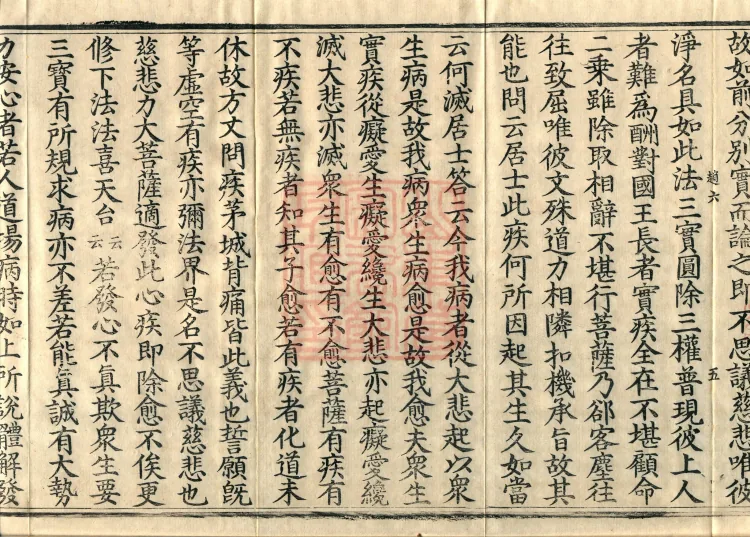 故如前分別實而論之即不思議慈悲唯彼
趙六
五
淨名具如此法三實圓除三權普現彼上人
者難為酬對國王長者實疾全在不堪顧命
二乘雖除取相辭不堪行菩薩乃郤客塵往
往致屈唯彼文殊道力相隣扣機承旨故其
能也問云居士此疾何所因起其生久如當
云何滅居士答云今我病者從大悲起以衆
生病是故我病衆生病愈是故我愈夫衆生
實疾從癡愛生癡愛纔生大悲亦起癡愛纔
滅大悲亦滅衆生有愈有不愈菩薩有疾有
不疾若無疾者知其子愈若有疾者化道未
休故方丈問疾茅城背痛皆此義也誓願旣
等虛空有疾亦彌法界是名不思議慈悲也
慈悲力大菩薩適發此心疾即除愈不俟更
修下法法喜天台云云若發心不眞欺衆生要
三寶有所規求病亦不差若能眞誠有大勢
力安心者若人道場病時如上所說體解發